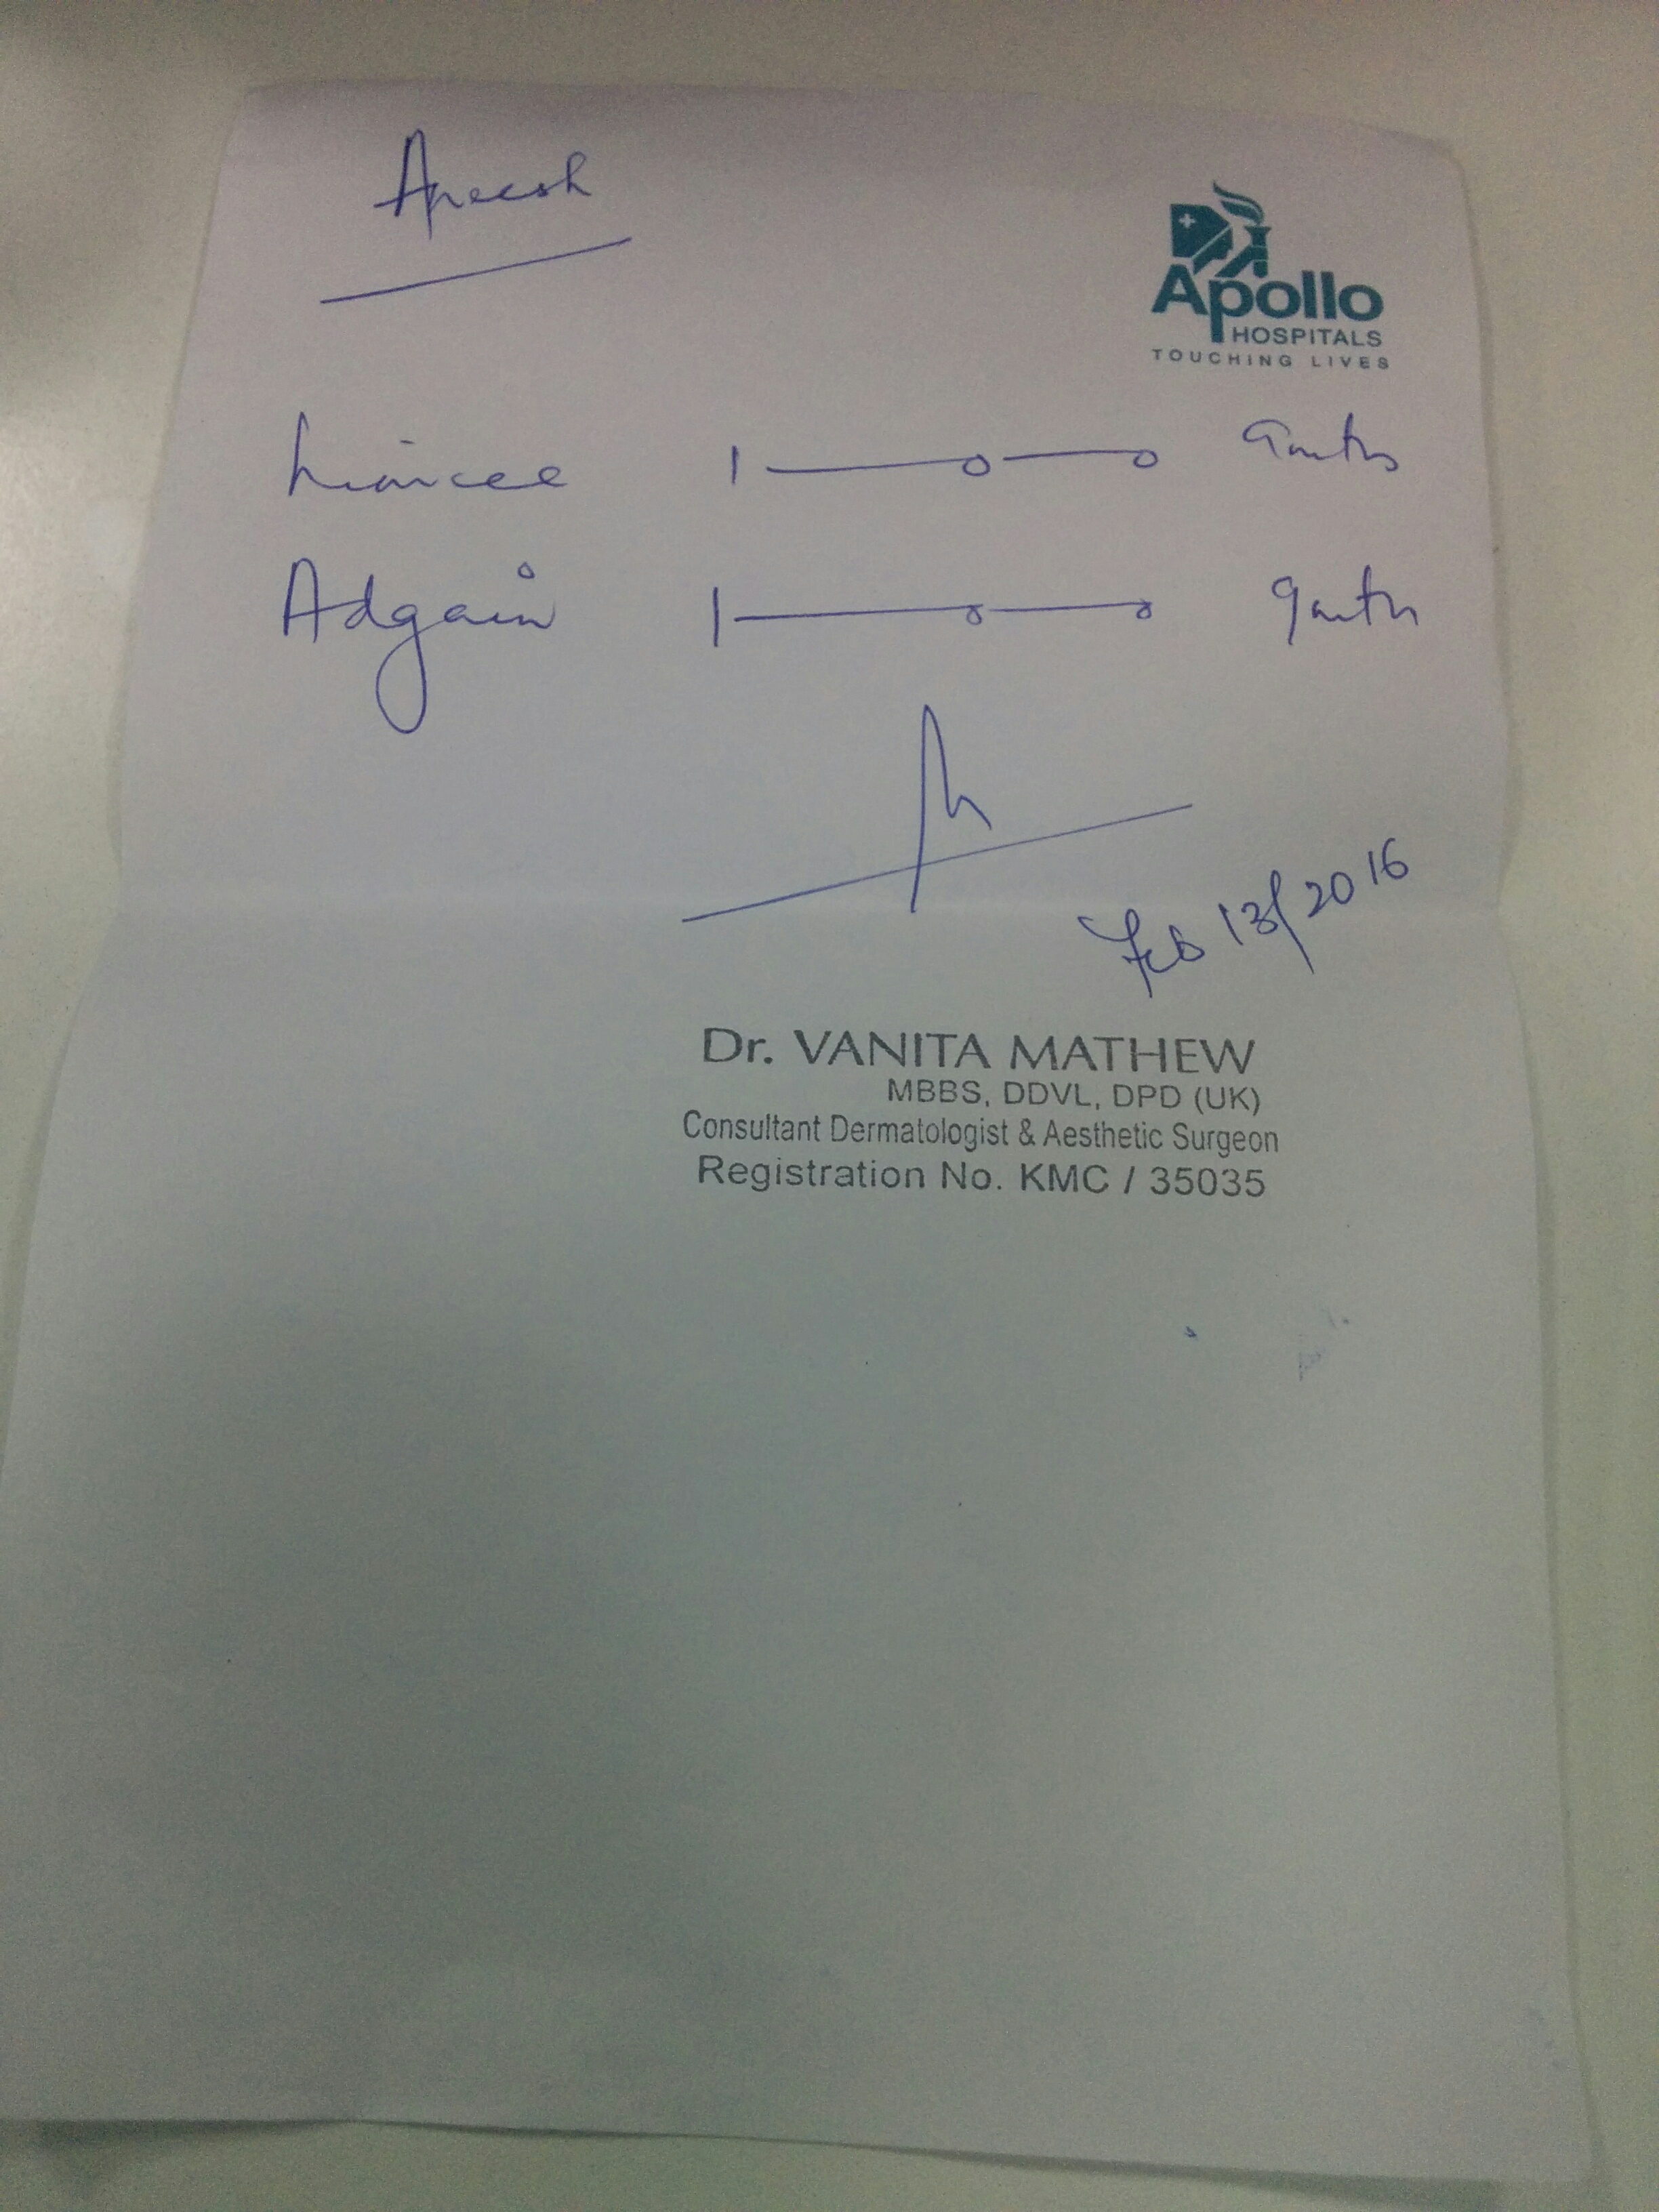 Apollo
HOSPITALS
TOUCHING LIVES
Limcee 1—0—0
Adgain 1—0—0
Feb 13/2016
Dr. VANITA MATHEW
MBBS, DDVL, DPD (UK)
Consultant Dermatologist & Aesthetic Surgeon
Registration No. KMC / 35035